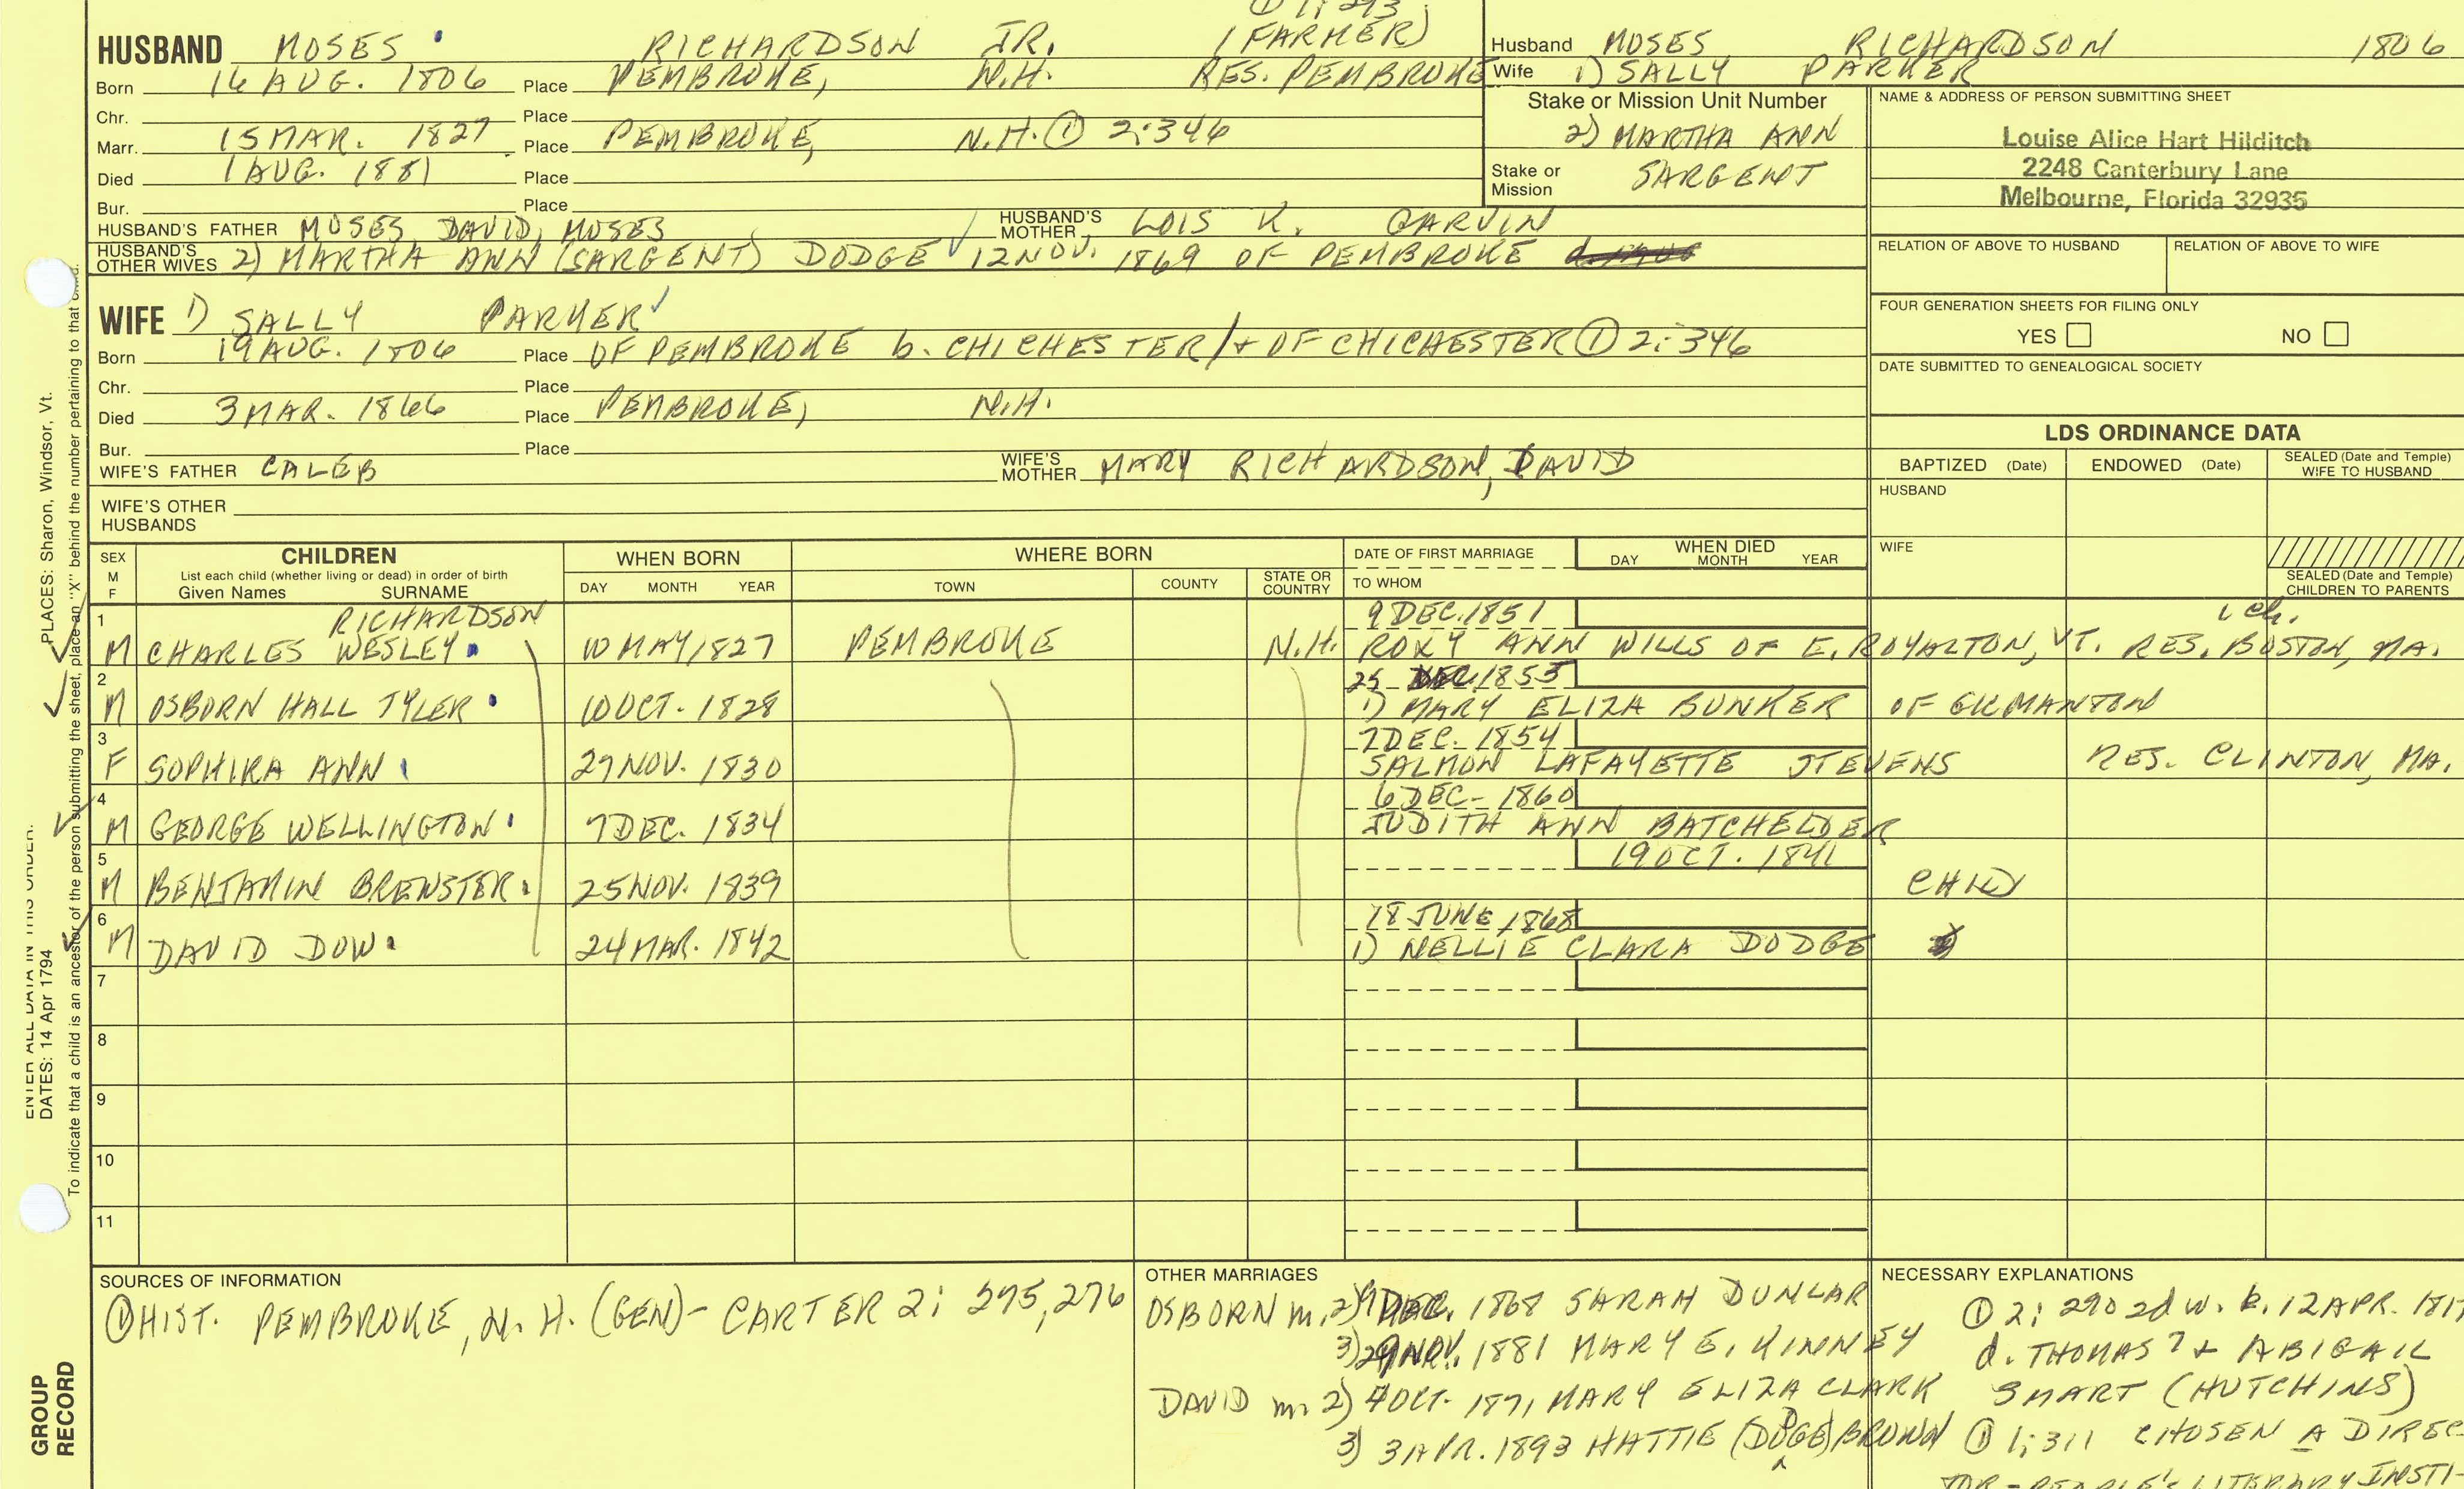 ① 1; 293
HUSBAND MOSES RICHARDSON JR. (FARMER)
Born 16 AUG. 1806 Place PEMBROKE, N.H. RES. PEMBROKE
Chr. Place
Marr. 15 MAR. 1827 Place PEMBROKE, N.H. ① 2:346
Died 1 AUG. 1881 Place
Bur. Place
HUSBAND'S FATHER MOSES, DAVID, MOSES HUSBAND'S MOTHER LOIS K. GARVIN
HUSBAND'S OTHER WIVES 2) MARTHA ANN (SARGENT) DODGE ✓ 12 NOV. 1869 OF PEMBROKE
Husband MOSES RICHARDSON 1806
Wife 1) SALLY PARKER
Stake or Mission Unit Number
2) MARTHA ANN
Stake or Mission SARGENT
NAME & ADDRESS OF PERSON SUBMITTING SHEET
Louise Alice Hart Hilditch
2248 Canterbury Lane
Melbourne, Florida 32935
RELATION OF ABOVE TO HUSBAND RELATION OF ABOVE TO WIFE
FOUR GENERATION SHEETS FOR FILING ONLY
YES NO
DATE SUBMITTED TO GENEALOGICAL SOCIETY
WIFE 1) SALLY PARKER ✓
Born 19 AUG. 1806 Place OF PEMBROKE b. CHICHESTER/+ OF CHICHESTER ① 2:346
Chr. Place
Died 3 MAR. 1866 Place PEMBROKE, N.H.
Bur. Place
WIFE'S FATHER CALEB WIFE'S MOTHER MARY RICHARDSON, DAVID
WIFE'S OTHER HUSBANDS
LDS ORDINANCE DATA
BAPTIZED (Date) ENDOWED (Date) SEALED (Date and Temple) WIFE TO HUSBAND
HUSBAND
WIFE
SEALED (Date and Temple) CHILDREN TO PARENTS
SEX M F CHILDREN WHEN BORN WHERE BORN DATE OF FIRST MARRIAGE WHEN DIED
List each child (whether living or dead) in order of birth
Given Names SURNAME DAY MONTH YEAR TOWN COUNTY STATE OR COUNTRY TO WHOM DAY MONTH YEAR
1 RICHARDSON 9 DEC. 1851 1 ch.
M CHARLES WESLEY 10 MAY 1827 PEMBROKE N.H. ROXY ANN WILLS OF E. ROYALTON, VT. RES. BOSTON, MA.
2 25 DEC. 1853
M OSBORN HALL TYLER 10 OCT. 1828 1) MARY ELIZA BUNKER OF GILMANTON
3 7 DEC. 1854
F SOPHIRA ANN 29 NOV. 1830 SALMON LAFAYETTE STEVENS RES. CLINTON, MA.
4 6 DEC. 1860
M GEORGE WELLINGTON 7 DEC. 1834 JUDITH ANN BATCHELDER
5 19 OCT. 1841
M BENJAMIN BREWSTER 25 NOV. 1839 CHILD
6 18 JUNE 1868
M DAVID DOW 24 MAR. 1842 1) NELLIE CLARA DODGE
7
8
9
10
11
SOURCES OF INFORMATION
① HIST. PEMBROKE, N.H. (GEN) - CARTER 2; 275, 276
OTHER MARRIAGES
OSBORN m. 2) 1868 SARAH DUNLAP
3) 29 NOV. 1881 MARY E. KINNEY
DAVID m. 2) 4 OCT. 1871 MARY ELIZA CLARK
3) 3 APR. 1893 HATTIE (DODGE) BROWN
NECESSARY EXPLANATIONS
① 2; 290 2d w. b. 12 APR. 181
d. THOMAS? + ABIGAIL
SMART (HUTCHINS)
① 1; 311 CHOSEN A DIREC-
TOR - PEOPLE'S LITERARY INSTI-
ENTER ALL DATA IN THIS ORDER.
DATES: 14 Apr 1794
PLACES: Sharon, Windsor, Vt.
To indicate that a child is an ancestor of the person submitting the sheet, place an "X" behind the number pertaining to that child.
GROUP
RECORD